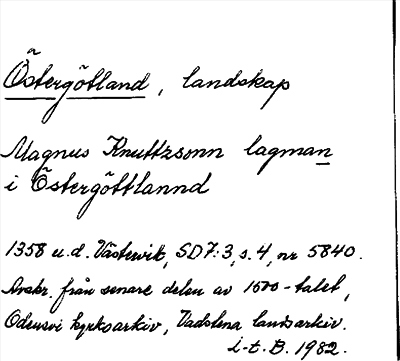 Östergötland, landskap
Magnus Knuttzsonn lagman
i Östergöttlannd
1358 u.d. Västervik, SD 7:3, s. 4, nr 5840.
Avskr. från senare delen av 1600-talet,
Odensvi kyrkoarkiv, Vadstena landsarkiv.
i-t. B. 1982.